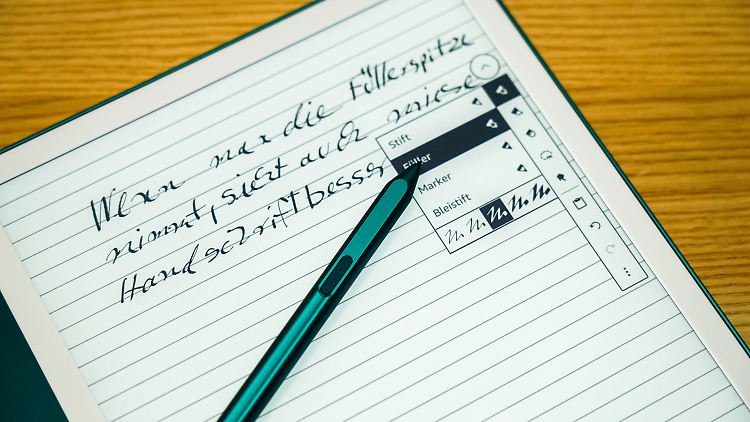 Wenn man die Füllerspitze
nimmt, sieht auch miese
Handschrift besser
Stift
Füller
Marker
Bleistift